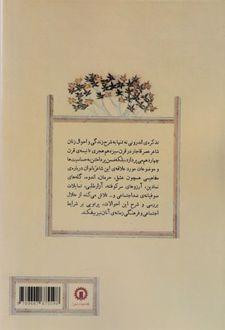 تذکره‌ی اندرونی نه تنها به شرح زندگی و احوال زنان
شاعر عصر قاجار در قرن سیزدهم هجری تا نیمه‌ی قرن
چهاردهم می‌پردازد، بلکه ضمن پرداختن به حساسیت‌ها
و موضوعات مورد علاقه‌ی این شاعر بانوان درباره‌ی
مفاهیمی همچون عشق، حرمان، اندوه، گله‌های
نمادین، آرزوهای سرکوفته، آزادطلبی، تمایلات
صوفیانه‌ی ضداجتماعی و... تلاش می‌کند از خلال
بررسی و شرح این احوالات، پرتویی بر شرایط
اجتماعی و فرهنگی زمانه‌ی آنان نیز بیفکند.